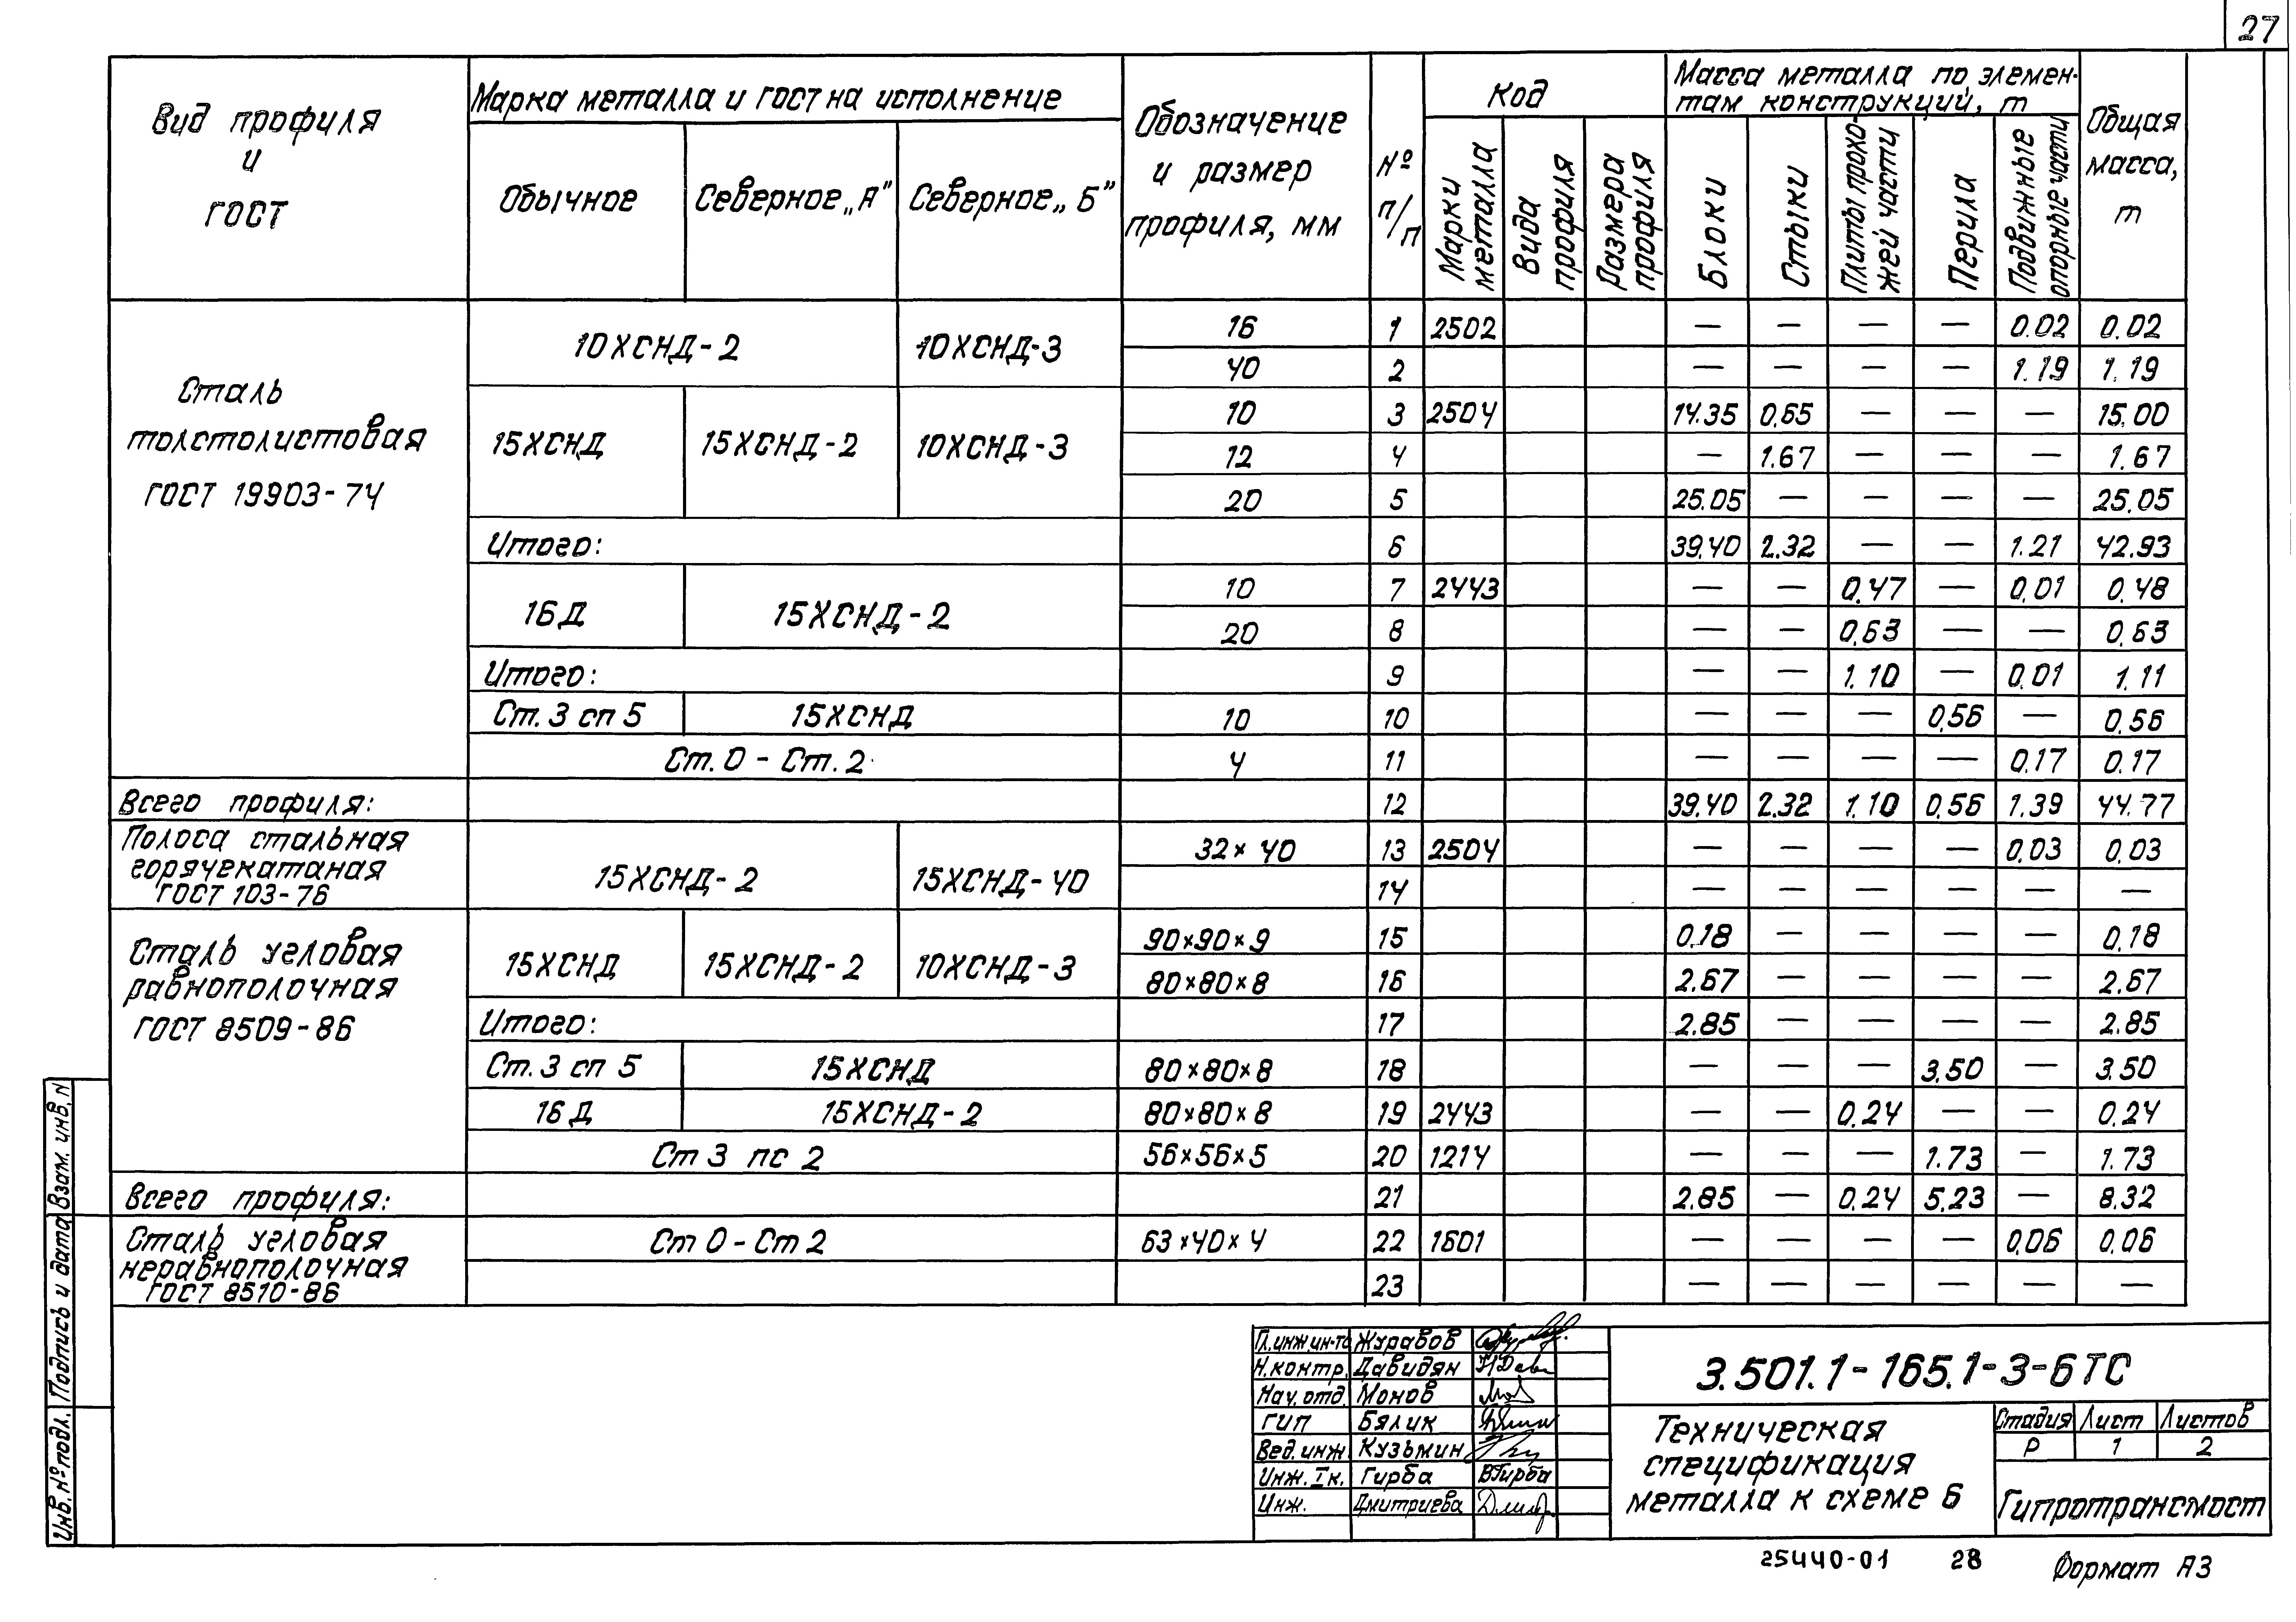 27
Вид профиля и ГОСТ
Марка металла и ГОСТ на исполнение
Обычное
Северное „А"
Северное „Б"
Обозначение и размер профиля, мм
№ п/п
Код
Марки металла
Вида профиля
Размера профиля
Масса металла по элемен-
там конструкций, т
Блоки
Стыки
Плиты проезжей части
Перила
Подвижные опорные части
Общая масса, т
Сталь
толстолистовая
ГОСТ 19903-74
10ХСНД-2 10ХСНД-3
16 1 2502 — — — — 0.02 0.02
40 2 — — — — 1.19 1.19
15ХСНД 15ХСНД-2 10ХСНД-3
10 3 2504 14.35 0.65 — — — 15.00
12 4 — 1.67 — — — 1.67
20 5 25.05 — — — — 25.05
Итого: 6 39.40 2.32 — — 1.21 42.93
16Д 15ХСНД-2
10 7 2443 — — 0.47 — 0.01 0.48
20 8 — — 0.63 — — 0.63
Итого: 9 — — 1.10 — 0.01 1.11
Ст. 3 сп 5 15ХСНД 10 10 — — — 0.56 — 0.56
Ст. 0 - Ст. 2 4 11 — — — — 0.17 0.17
Всего профиля: 12 39.40 2.32 1.10 0.56 1.39 44.77
Полоса стальная
горячекатаная
ГОСТ 103-76
15ХСНД-2 15ХСНД-40
32×40 13 2504 — — — — 0.03 0.03
14 — — — — — —
Сталь угловая
равнополочная
ГОСТ 8509-86
15ХСНД 15ХСНД-2 10ХСНД-3
90×90×9 15 0.18 — — — — 0.18
80×80×8 16 2.67 — — — — 2.67
Итого: 17 2.85 — — — — 2.85
Ст. 3 сп 5 15ХСНД 80×80×8 18 — — — 3.50 — 3.50
16Д 15ХСНД-2 80×80×8 19 2443 — — 0.24 — — 0.24
Ст 3 пс 2 56×56×5 20 1214 — — — 1.73 — 1.73
Всего профиля: 21 2.85 — 0.24 5.23 — 8.32
Сталь угловая
неравнополочная
ГОСТ 8510-86
Ст 0 - Ст 2 63×40×4 22 1601 — — — — 0.06 0.06
23 — — — — — —
Взам. инв. N
Подпись и дата
Инв. № подл.
Гл. инж. ин-та Журавов
Н. контр. Давидян
Нач. отд. Монов
ГИП Бялик
Вед. инж. Кузьмин
Инж. I к. Гирба ВГирба
Инж. Дмитриева
3.501.1-165.1-3-6ТС
Техническая
спецификация
металла к схеме 6
Стадия Лист Листов
Р 1 2
Гипротрансмост
25440-01 28 Формат А3